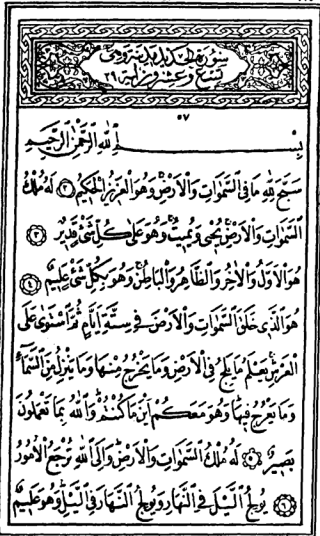 سُورَةُ الْحَدِيدِ مَدَنِيَّةٌ وَهِىَ
تِسْعٌ وَعِشْرُونَ آيَة ٢٩
٥٧
بِسْمِ اللهِ الرَّحْمٰنِ الرَّحِيمِ
سَبَّحَ لِلّٰهِ مَا فِى السَّمٰوَاتِ وَالْاَرْضِ وَهُوَ الْعَزِيزُ الْحَكِيمُ ٢ لَهُ مُلْكُ
السَّمٰوَاتِ وَالْاَرْضِ يُحْيِى وَيُمِيتُ وَهُوَ عَلٰى كُلِّ شَىْءٍ قَدِيرٌ ٣
هُوَ الْاَوَّلُ وَالْاٰخِرُ وَالظَّاهِرُ وَالْبَاطِنُ وَهُوَ بِكُلِّ شَىْءٍ عَلِيمٌ ٤
هُوَ الَّذِى خَلَقَ السَّمٰوَاتِ وَالْاَرْضَ فِى سِتَّةِ اَيَّامٍ ثُمَّ اسْتَوٰى عَلَى
الْعَرْشِ يَعْلَمُ مَا يَلِجُ فِى الْاَرْضِ وَمَا يَخْرُجُ مِنْهَا وَمَا يَنْزِلُ مِنَ السَّمَاءِ
وَمَا يَعْرُجُ فِيهَا وَهُوَ مَعَكُمْ اَيْنَ مَا كُنْتُمْ وَاللهُ بِمَا تَعْمَلُونَ
بَصِيرٌ ٥ لَهُ مُلْكُ السَّمٰوَاتِ وَالْاَرْضِ وَاِلَى اللهِ تُرْجَعُ الْاُمُورُ
٦ يُولِجُ الَّيْلَ فِى النَّهَارِ وَيُولِجُ النَّهَارَ فِى الَّيْلِ وَهُوَ عَلِيمٌ